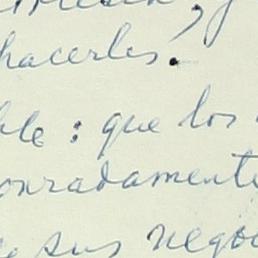 hacerles.
ble: que los
onradamente
sus nego